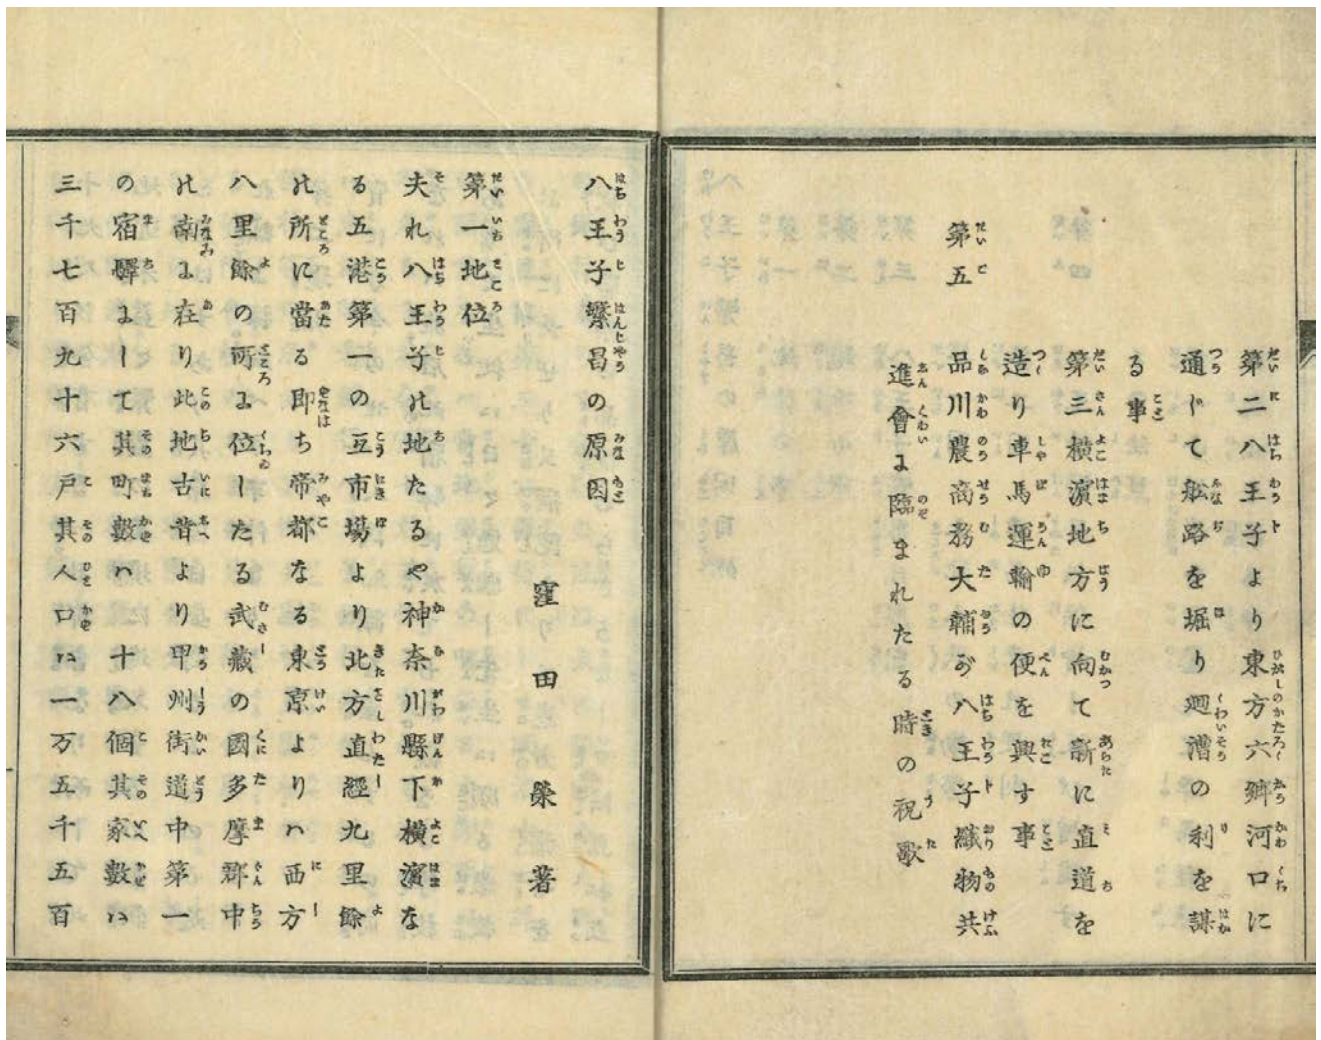 第二八王子より東方六郷河口に
通じて舩路を堀り廻漕の利を謀
る事
第三横濱地方に向て新に直道を
造り車馬運輸の便を興す事
第五
品川農商務大輔が八王子織物共
進會に臨まれたる時の祝歌
八王子繁昌の原因
窪田 榮 著
第一地位
夫れ八王子の地たるや神奈川縣下横濱な
る五港第一の互市場より北方直經九里餘
の所に當る即ち帝都なる東京よりハ西方
八里餘の所に位したる武藏の國多摩郡中
の南に在り此地古昔より甲州街道中第一
の宿驛にして其町數ハ十八個其家數ハ
三千七百九十六戸其人口ハ一万五千五百